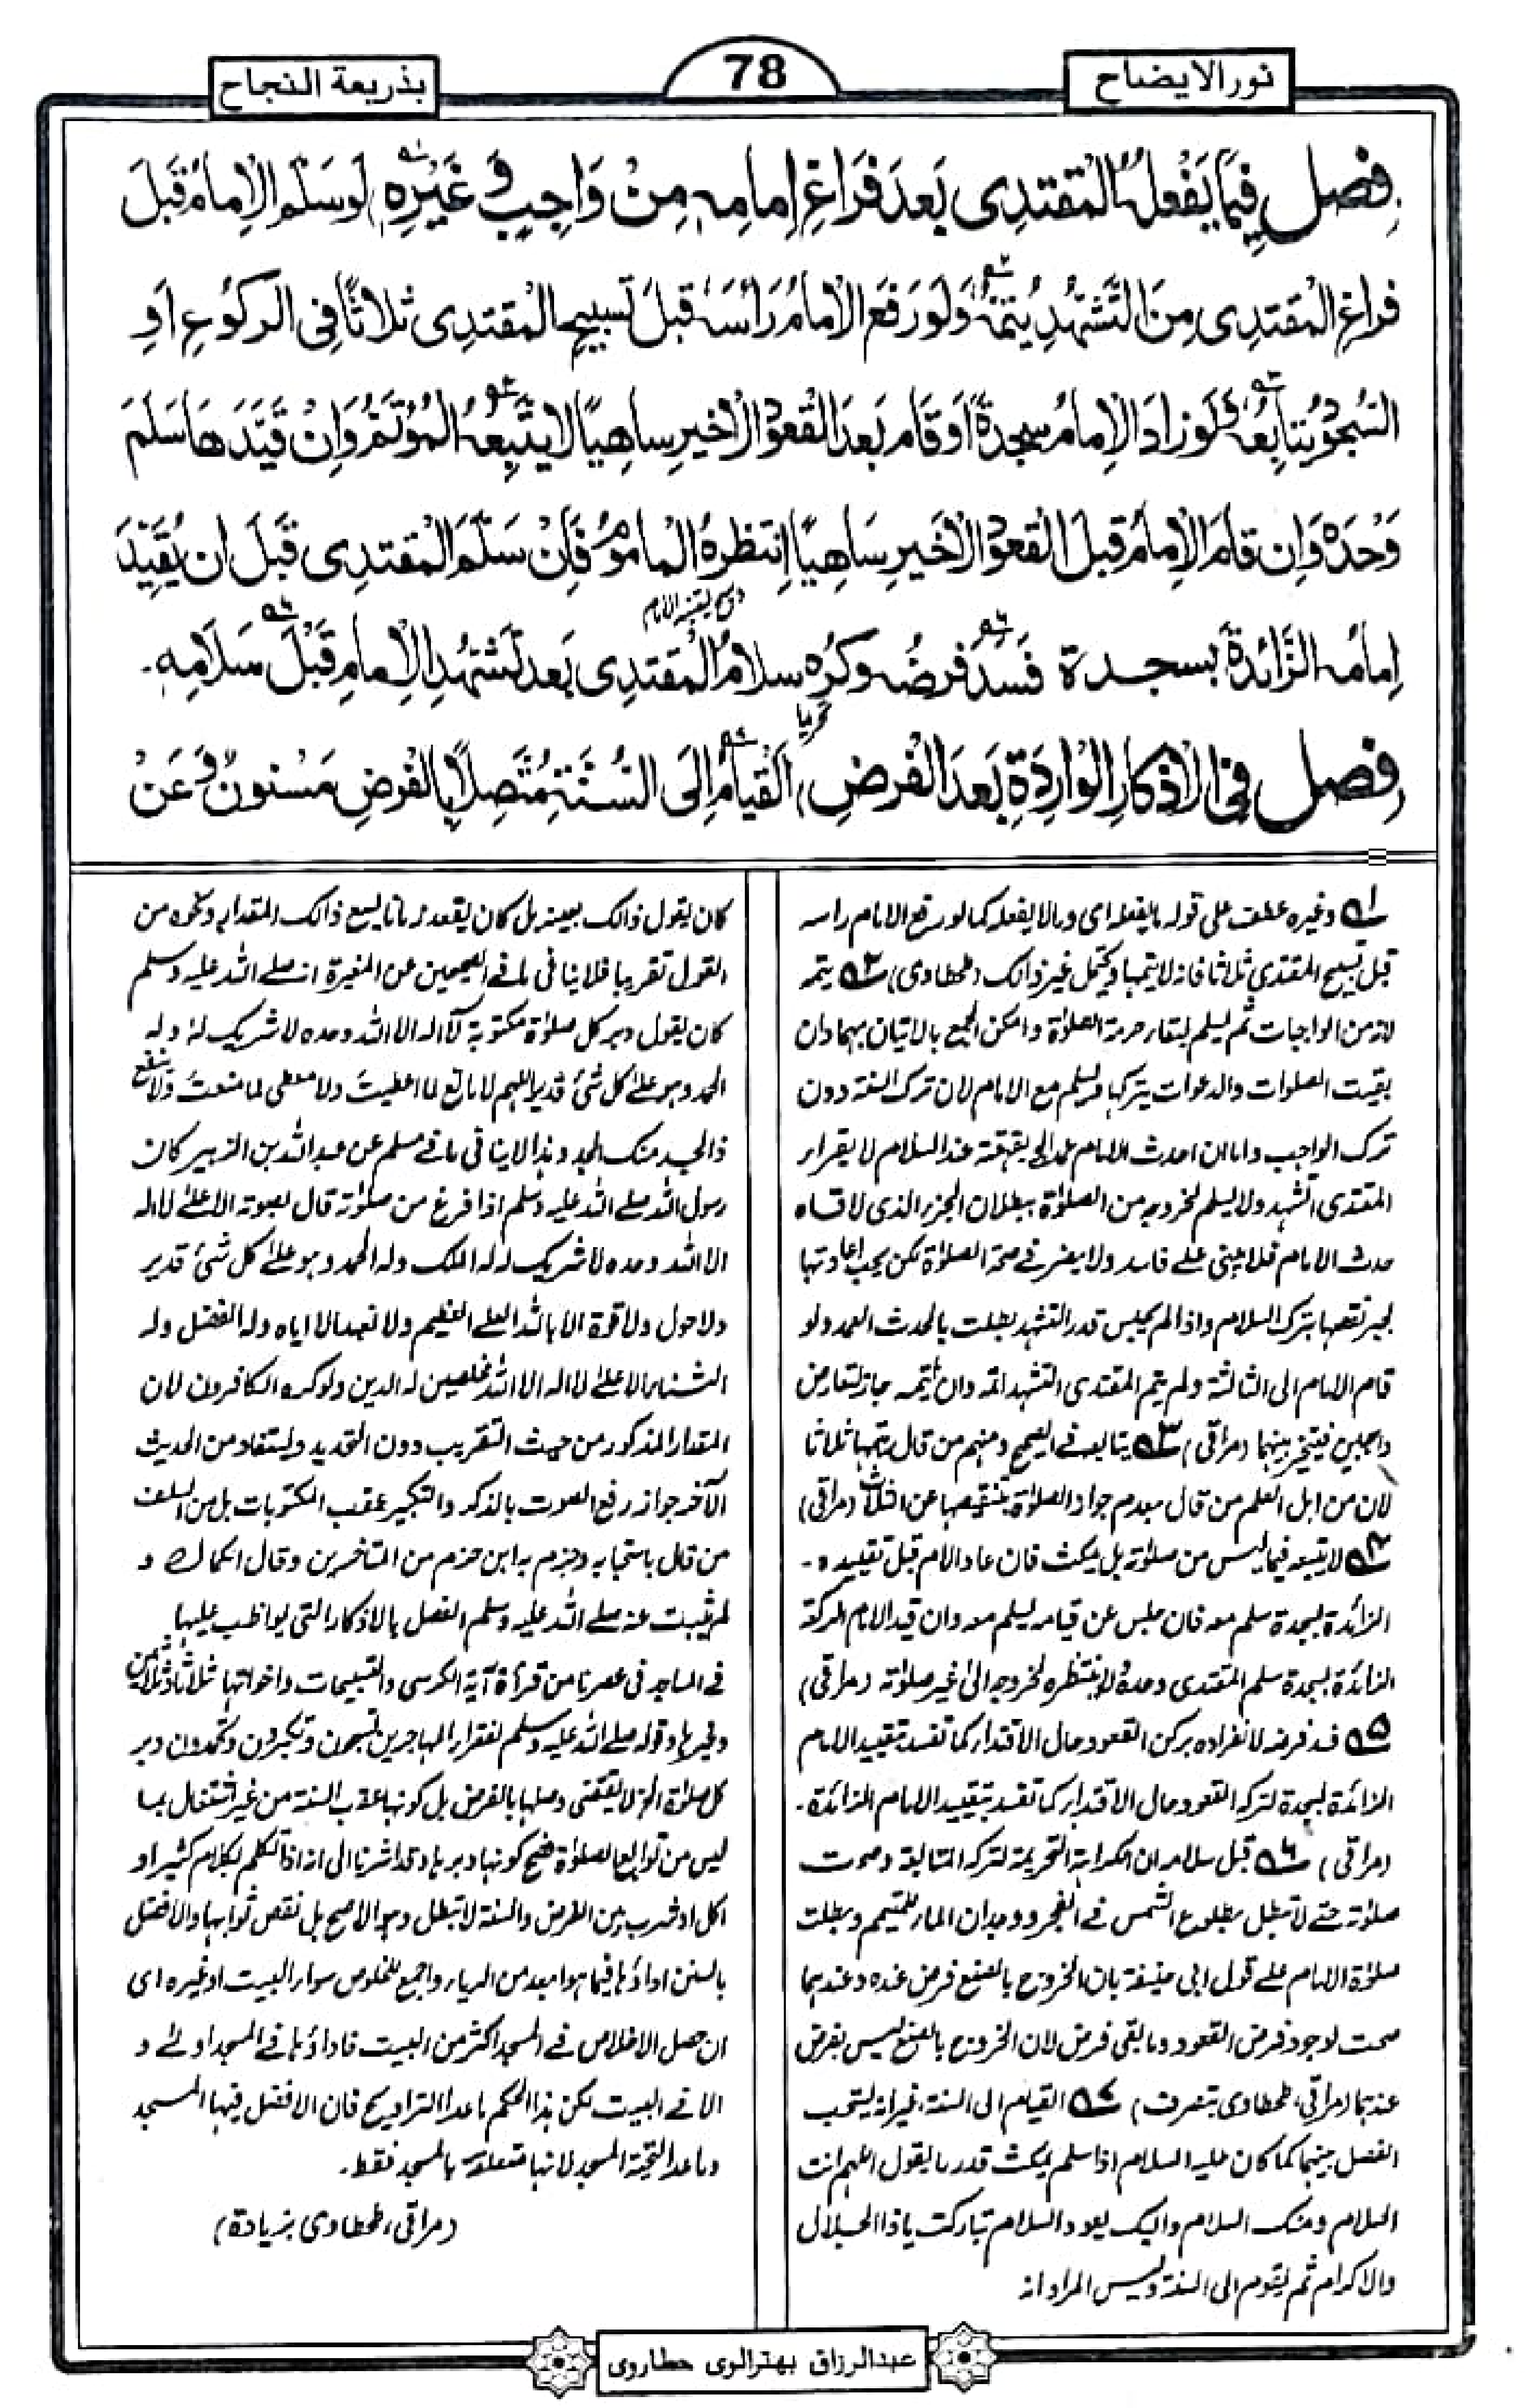 نور الايضاح
78
بذريعة النجاح
فصل فِيمَا يَفْعَلُهُ الْمُقْتَدِى بَعْدَ فَرَاغِ إِمَامِهٖ مِنْ وَاجِبٍ وَ غَيْرِهٖ) لَو سَلَّمَ الْإِمَامُ قَبْلَ
فراغِ الْمُقْتَدِى مِنَ التَّشَهُّدِ يُتِمُّهٗ وَلَوْ رَفَعَ الْإِمَامُ رَأْسَهٗ قَبْلَ تَسْبِيحِ الْمُقْتَدِى ثَلَاثًا فِى الرُّكُوْعِ اَوِ
السُّجُوْدِ يُتَابِعُهٗ وَلَوْ زَادَ الْإِمَامُ سجدةً اَوْ قَامَ بَعْدَ الْقُعُوْدِ الْاَخِيرِ سَاهِيًا لَا يَتَّبِعُهُ الْمُؤْتَمُّ وَاِنْ قَيَّدَهَا سَلَّمَ
وَحْدَهٗ وَاِن قَامَ الْإِمَامُ قَبْلَ الْقُعُوْدِ الْاَخِيرِ سَاهِيًا اِنْتَظَرَهُ الْمَامُوْمُ فَاِنْ سَلَّمَ الْمُقْتَدِى قَبْلَ اَن يُّقَيِّدَ
اِمَامُهُ الزَّائِدَةَ بسجدة فَسَدَ فَرضُهٗ وَكُرِهَ سلامُ الْمُقْتَدِى بَعْدَ تَشَهُّدِ الْإِمَامِ قَبْلَ سَلَامِهٖ۔
فصل فِى الْاَذْكَارِ الْوَارِدَةِ بَعْدَ الْفَرضِ) اَلْقِيَامُ اِلَى السُّنَّةِ مُتَّصِلًا بِالْفَرضِ مَسْنُونٌ وَ عَنْ
وغيره عطف على قوله ما يفعله اى وما لا يفعله كما لو رفع الامام راسه
قبل تسبيح المقتدى ثلاثا فانه لا يتمها ويحتمل غير ذالك (طحطاوى) يتمه
لانه من الواجبات ثم يسلم لبقاء حرمة الصلوٰة وامكن الجمع بالاتيان بهما وان
بقيت الصلوات والدعوات يتركها ويسلم مع الامام لان ترك السنة دون
ترك الواجب واما ان احدث الامام عمدا بقهقهة عند السلام لا يقرأ
المقتدى التشهد ولا يسلم لخروجه من الصلوٰة ببطلان الجزء الذى لاقاه
حدث الامام فلا يبنى على فاسد ولا يضر فى صحة الصلوٰة لكن يجب اعادتها
لجبر نقصها بترك السلام واذا لم يجلس قدر التشهد بطلت بالحدث العمد ولو
قام الامام الى الثالثة ولم يتم المقتدى التشهد اتمه وان لم يتمه جاز لتعارض
واجبين فيتخير بينهما (مراقى) يتابعه فى الصحيح ومنهم من قال يتمها ثلاثا
لان من اهل العلم من قال بعدم جواز الصلوٰة بتنقيصها عن الثلاث (مراقى)
لا يتبعه فيما ليس من صلوٰته بل يمكث فان عاد الامام قبل تقييده۔
الزائدة بسجدة سلم معه فان جلس عن قيامه يسلم معه وان قيد الامام الركعة
الزائدة بسجدة سلم المقتدى وحده ولا ينتظره لخروجه الى غير صلوٰته (مراقى)
فسد فرضه لانفراده بركن القعود حال الاقتداء كما تفسد بتقييد الامام
الزائدة بسجدة لتركه القعود حال الاقتداء كما تفسد بتقييد الامام الزائدة۔
(مراقى) قبل سلامه ان الكراهة التحريمة لتركه المتابعة وصحت
صلوٰته حتى لا تبطل بطلوع الشمس فى الفجر ووجدان الماء للمتيمم وبطلت
صلوٰة الامام على قول ابى حنيفة بان الخروج بالصنع فرض عنده وعندهما
صحت لوجود فرض القعود وما بقى فرض لان الخروج بالصنع ليس بفرض
عندهما (مراقى، طحطاوى بتصرف) القيام الى السنة، غير انه يستحب
الفصل بينهما كما كان عليه السلام اذا سلم يمكث قدر ما يقول اللهم انت
السلام ومنك السلام واليك يعود السلام تباركت ياذا الجلال
والاكرام ثم يقوم الى السنة وليس المراد انه
كان يقول ذالك بعينه بل كان يقعد زمانا يسع ذالك المقدار ونحوه من
القول تقريبا فلا ينافى ما فى الصحيحين عن المغيرة انه صلى الله عليه وسلم
كان يقول دبر كل صلوٰة مكتوبة لا اله الا الله وحده لا شريك له له
الحمد وهو على كل شئ قدير اللهم لا مانع لما اعطيت ولا معطى لما منعت ولا ينفع
ذا الجد منك الجد وهذا لا ينافى ما فى مسلم عن عبد الله بن الزبير كان
رسول الله صلى الله عليه وسلم اذا فرغ من صلوٰته قال بصوته الاعلىٰ لا اله
الا الله وحده لا شريك له له الملك وله الحمد وهو على كل شئ قدير
ولا حول ولا قوة الا بالله العلى العظيم ولا نعبد الا اياه وله الفضل وله
الثناء لا اله الا الله مخلصين له الدين ولو كره الكافرون لان
المقدار المذكور من حيث التقريب دون التحديد ويستفاد من الحديث
الآخر جواز رفع الصوت بالذكر والتكبير عقب المكتوبات بل من السلف
من قال باستحبابه وجزم به ابن حزم من المتاخرين وقال الكمال و
لم يثبت عنه صلى الله عليه وسلم الفصل بالاذكار التى يواظب عليها
فى المساجد فى عصرنا من قرأة آية الكرسى والتسبيحات واخواتها ثلاثا وثلاثين
وغيرها وقوله صلى الله عليه وسلم لفقراء المهاجرين تسبحون وتكبرون وتحمدون دبر
كل صلوٰة الخ لا يقتضى وصلها بالفرض بل كونها عقب السنة من غير اشتغال بما
ليس من توابع الصلوٰة فصح كونها دبرها وقد اشرنا الى انه اذا تكلم بكلام كثير او
اكل او شرب بين الفرض والسنة لا تبطل وهو الاصح بل نقص ثوابها والافضل
بالسنن اداؤها فيما هو ابعد من الرياء واجمع للخلوص سواء البيت او غيره اى
ان حصل الاخلاص فى المسجد اكثر من البيت فاداؤها فى المسجد اولىٰ و
الا فى البيت لكن هذا الحكم ما عدا التراويح فان الافضل فيها المسجد
وما عدا التحية المسجد لانها متعلقة بالمسجد فقط۔
(مراقى، طحطاوى بزيادة)
عبدالرزاق بهترالوى حطاروى